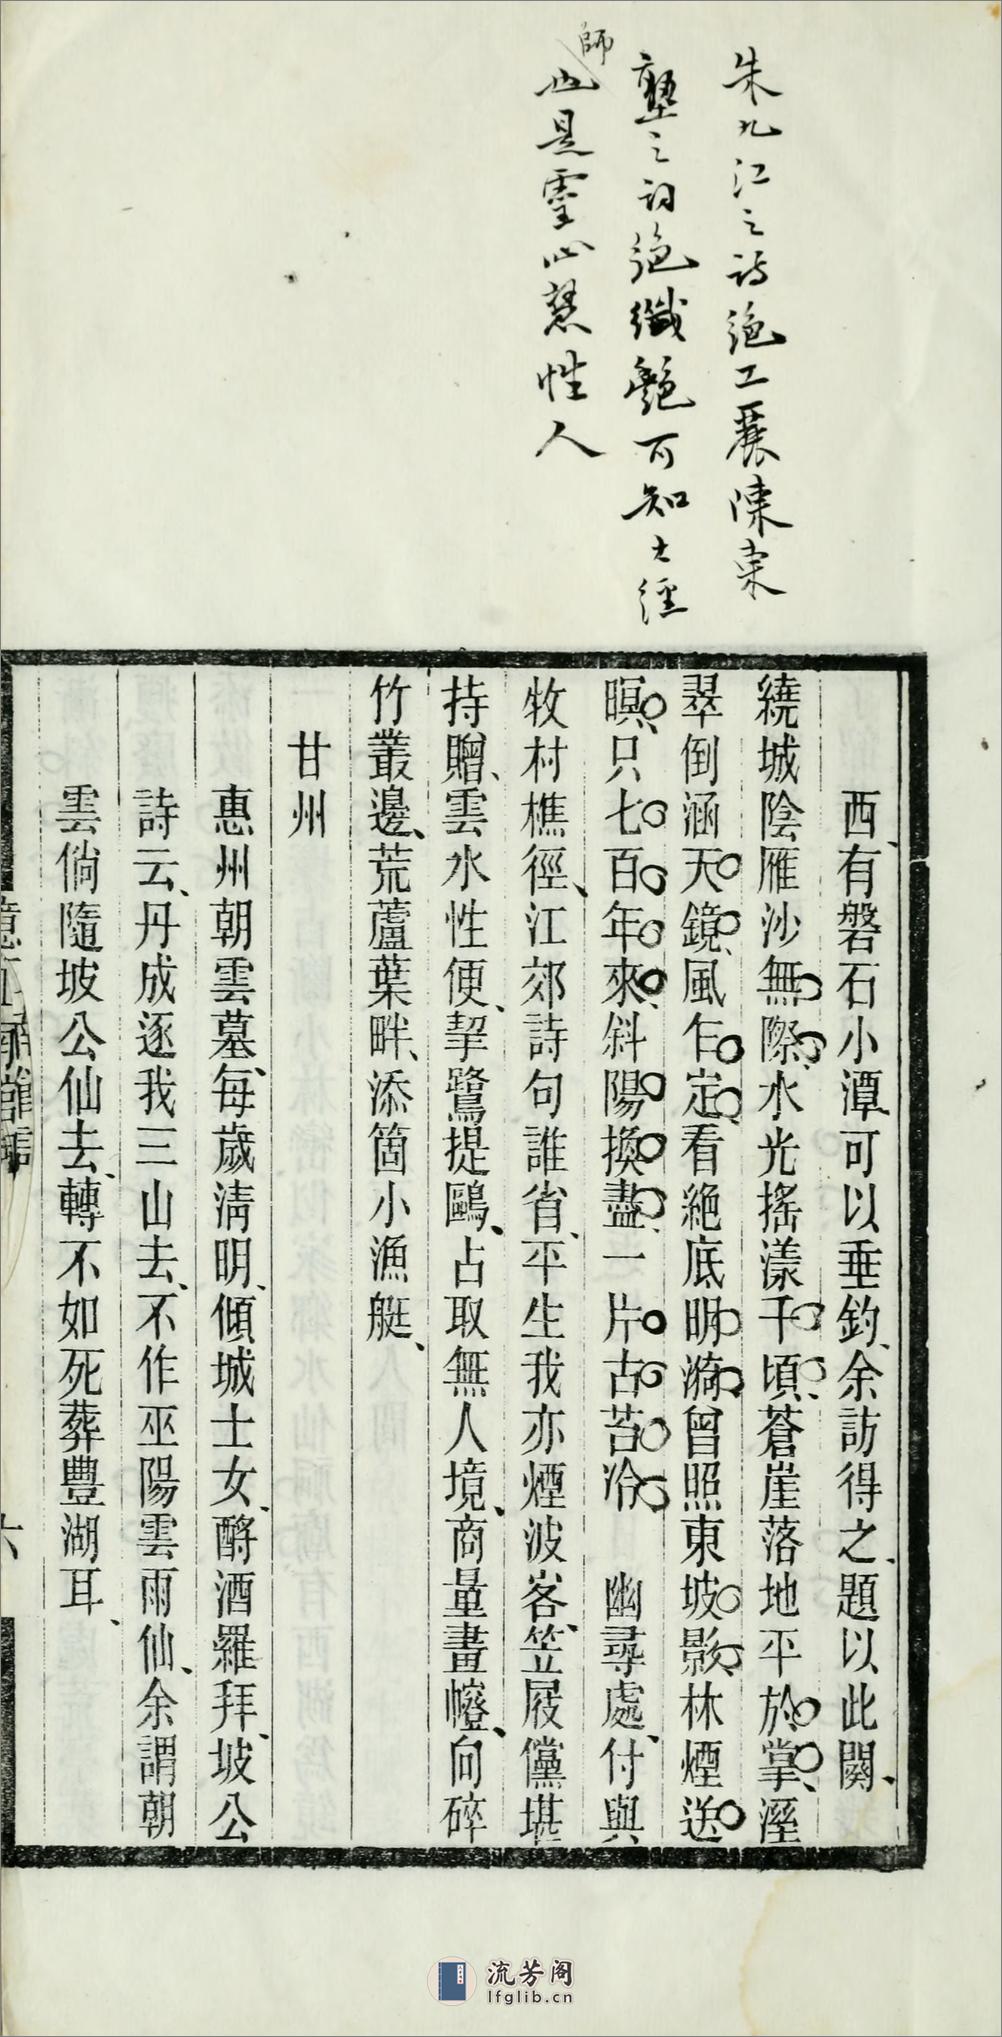 朱九江之詩絕工麗陳東
塾之詞絕纖艷可知大經
師也是靈心慧性人
西、有磐石小潭、可以垂釣、余訪得之、題以此闋、
繞城陰雁沙無際、水光搖漾千頃、蒼崖落地平於掌、溼
翠倒涵天鏡、風乍定、看絕底明漪、曾照東坡影、林煙送
暝、只七百年來、斜陽換盡、一片古苔冷　幽尋處、付與
牧村樵徑、江郊詩句誰省、平生我亦煙波客、笠屐儻堪
持贈、雲水性便、挈鷺提鷗、占取無人境、商量畫㡧、向碎
竹叢邊、荒蘆葉畔、添箇小漁艇、
甘州
惠州朝雲墓、每歲淸明、傾城士女、酹酒羅拜、坡公
詩云、丹成逐我三山去、不作巫陽雲雨仙、余謂朝
雲倘隨坡公仙去、轉不如死葬豐湖耳、
憶江南館詞
六
流芳阁
lfglib.cn